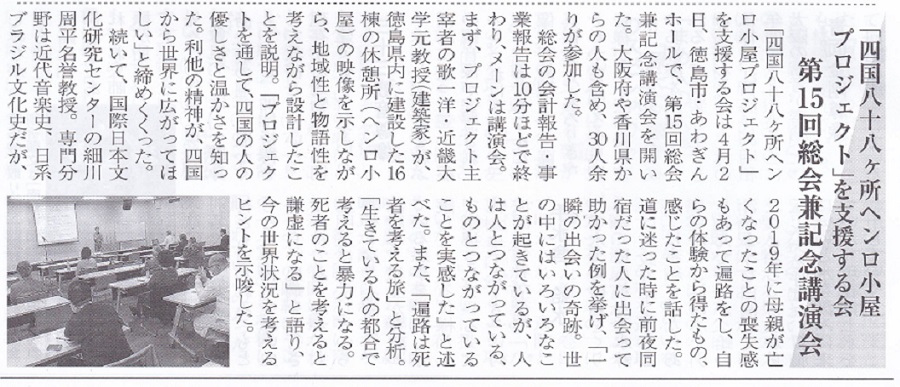 「四国八十八ヶ所ヘンロ小屋
プロジェクト」を支援する会
第15回総会兼記念講演会
「四国八十八ヶ所ヘン
ロ小屋プロジェクト」
を支援する会は4月2
日、徳島市・あわぎん
ホールで、第15回総会
兼記念講演会を開い
た。大阪府や香川県か
らの人も含め、30人余
りが参加した。
総会の会計報告・事
業報告は10分ほどで終
わり、メーンは講演会。
まず、プロジェクト主
宰者の歌一洋・近畿大
学元教授(建築家)が
徳島県内に建設した16
棟の休憩所(ヘンロ小
屋)の映像を示しなが
ら、地域性と物語性を
考えながら設計したこ
とを説明。「プロジェク
トを通して、四国の人の
優しさと温かさを知っ
た。利他の精神が、四国
から世界に広がってほ
しい」と締めくくった。
続いて、国際日本文
化研究センターの細川
周平名誉教授。専門分
野は近代音楽史、日系
ブラジル文化史だが、
2019年に母親が亡
くなったことの喪失感
もあって遍路をし、自
らの体験から得たもの、
感じたことを話した。
道に迷った時に前夜同
宿だった人に出会って
助かった例を挙げ、「一
瞬の出会いの奇跡。世
の中にはいろいろなこ
とが起きているが、人
は人とつながっている、
ものとつながっている
ことを実感した」と述
べた。また、「遍路は死
者を考える旅」と分析。
「生きている人の都合で
考えると暴力になる。
死者のことを考えると
謙虚になる」と語り、
今の世界状況を考える
ヒントを示唆した。